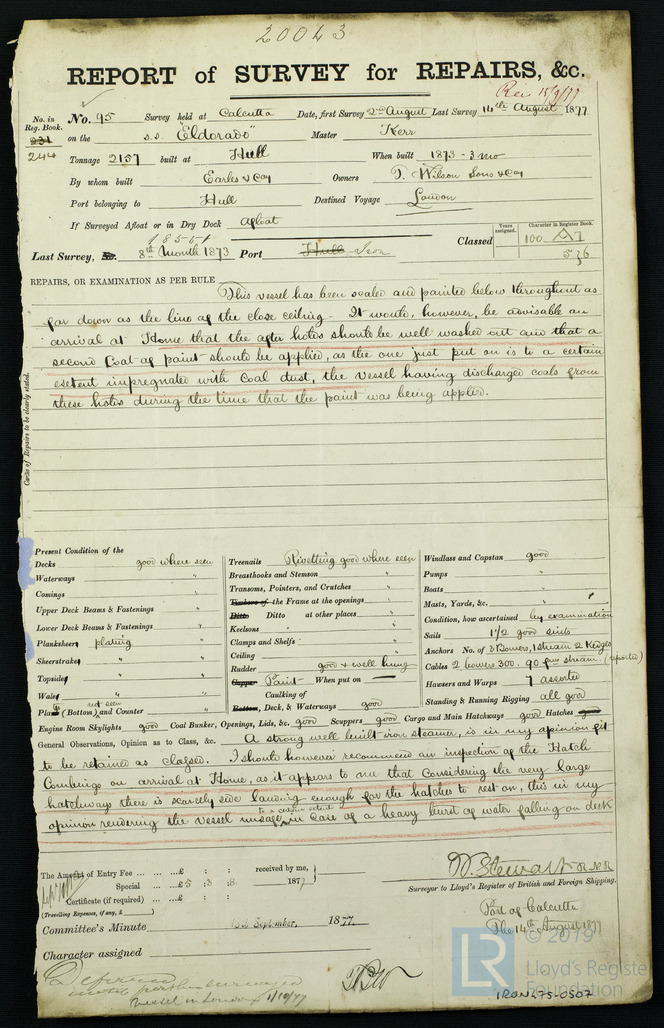 20043
REPORT of SURVEY for REPAIRS, &c.
Rec 15/9/77
No. in Reg. Book.
231
244
No. 95 Survey held at Calcutta Date, first Survey 2nd August Last Survey 14th August 1877
on the s.s. "Eldorado" Master Kerr
Tonnage 2157 built at Hull When built 1873 - 3 mo
By whom built Earles & Coy Owners T. Wilson Sons & Coy
Port belonging to Hull Destined Voyage London
If Surveyed Afloat or in Dry Dock afloat
Last Survey, No. 8th Month 1873 Port Hull Iron
Classed
Years assigned.
Character in Register Book.
100 A1
REPAIRS, OR EXAMINATION AS PER RULE
This vessel has been scaled and painted below throughout as
far down as the line of the close ceiling - It would, however, be advisable on
arrival at Home that the after holds should be well washed out and that a
second Coat of paint should be applied, as the one just put on is to a certain
extent impregnated with Coal dust, the vessel having discharged coals from
these holds during the time that the paint was being applied.
Cause of Repairs to be clearly stated.
Present Condition of the
Decks good where seen
Waterways "
Comings "
Upper Deck Beams & Fastenings "
Lower Deck Beams & Fastenings "
Planksheers plating "
Sheerstrakes "
Topsides "
Wales "
not seen
(Bottom) and Counter "
Treenails Rivetting good where seen
Breasthooks and Stemson "
Transoms, Pointers, and Crutches "
Timbers of the Frame at the openings "
Ditto Ditto at other places "
Keelsons "
Clamps and Shelfs "
Ceiling "
Rudder good & well hung
Copper Paint When put on —
Caulking of
Bottom, Deck, & Waterways good
Windlass and Capstan good
Pumps "
Boats "
Masts, Yards, &c. "
Condition, how ascertained by examination
Sails 1 1/2 good suits
Anchors No. of 3 Bowers, 1 stream 2 Kedges
Cables 2 bowers 300. 90 fms stream. (reported)
Hawsers and Warps 7 assorted
Standing & Running Rigging all good
Engine Room Skylights good Coal Bunker, Openings, Lids, &c. good Scuppers good Cargo and Main Hatchways good Hatches good
General Observations, Opinion as to Class, &c. A strong well built iron steamer, is in my opinion fit
to be retained as classed. I should however recommend an inspection of the Hatch
Combings on arrival at Home, as it appears to me that considering the very large
hatchways there is scarcely side landing enough for the hatches to rest on, this in my
opinion rendering the vessel unsafe to a certain extent in case of a heavy burst of water falling on deck
The Amount of Entry Fee ... ... £ : : received by me,
Special ... ... £5 : 3 : 8 1877
Certificate (if required) ... £ : :
(Travelling Expenses, if any, £ )
W. Stewart R.N.R
Surveyor to Lloyd's Register of British and Foreign Shipping.
Port of Calcutta
The 14th August 1877
Committee's Minute September, 1877.
Character assigned
Deferred
until further surveyed
Vessel in London 1/10/77
© 2019
LR
Lloyd's Register
Foundation
IRON475-0507